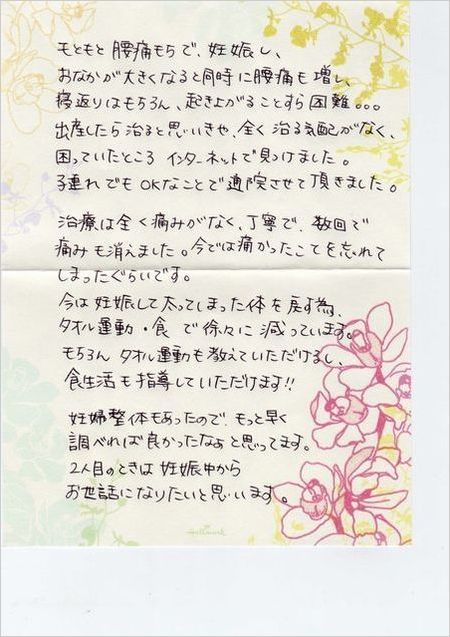 もともと腰痛もちで、妊娠し、
おなかが大きくなると同時に腰痛も増し、
寝返りはもちろん、起き上がることすら困難。。。
出産したら治ると思いきや、全く治る気配がなく、
困っていたところ インターネットで見つけました。
子連れでもOKなことで通院させて頂きました。
治療は全く痛みがなく、丁寧で、数回で
痛みも消えました。今では痛かったことを忘れて
しまったぐらいです。
今は妊娠して太ってしまった体を戻す為、
タオル運動・食で徐々に減っています。
もちろん タオル運動も教えていただけるし、
食生活も指導していただけます!!
妊婦整体もあったので、もっと早く
調べれば良かったなぁと思ってます。
2人目のときは妊娠中から
お世話になりたいと思います。
Hallmark